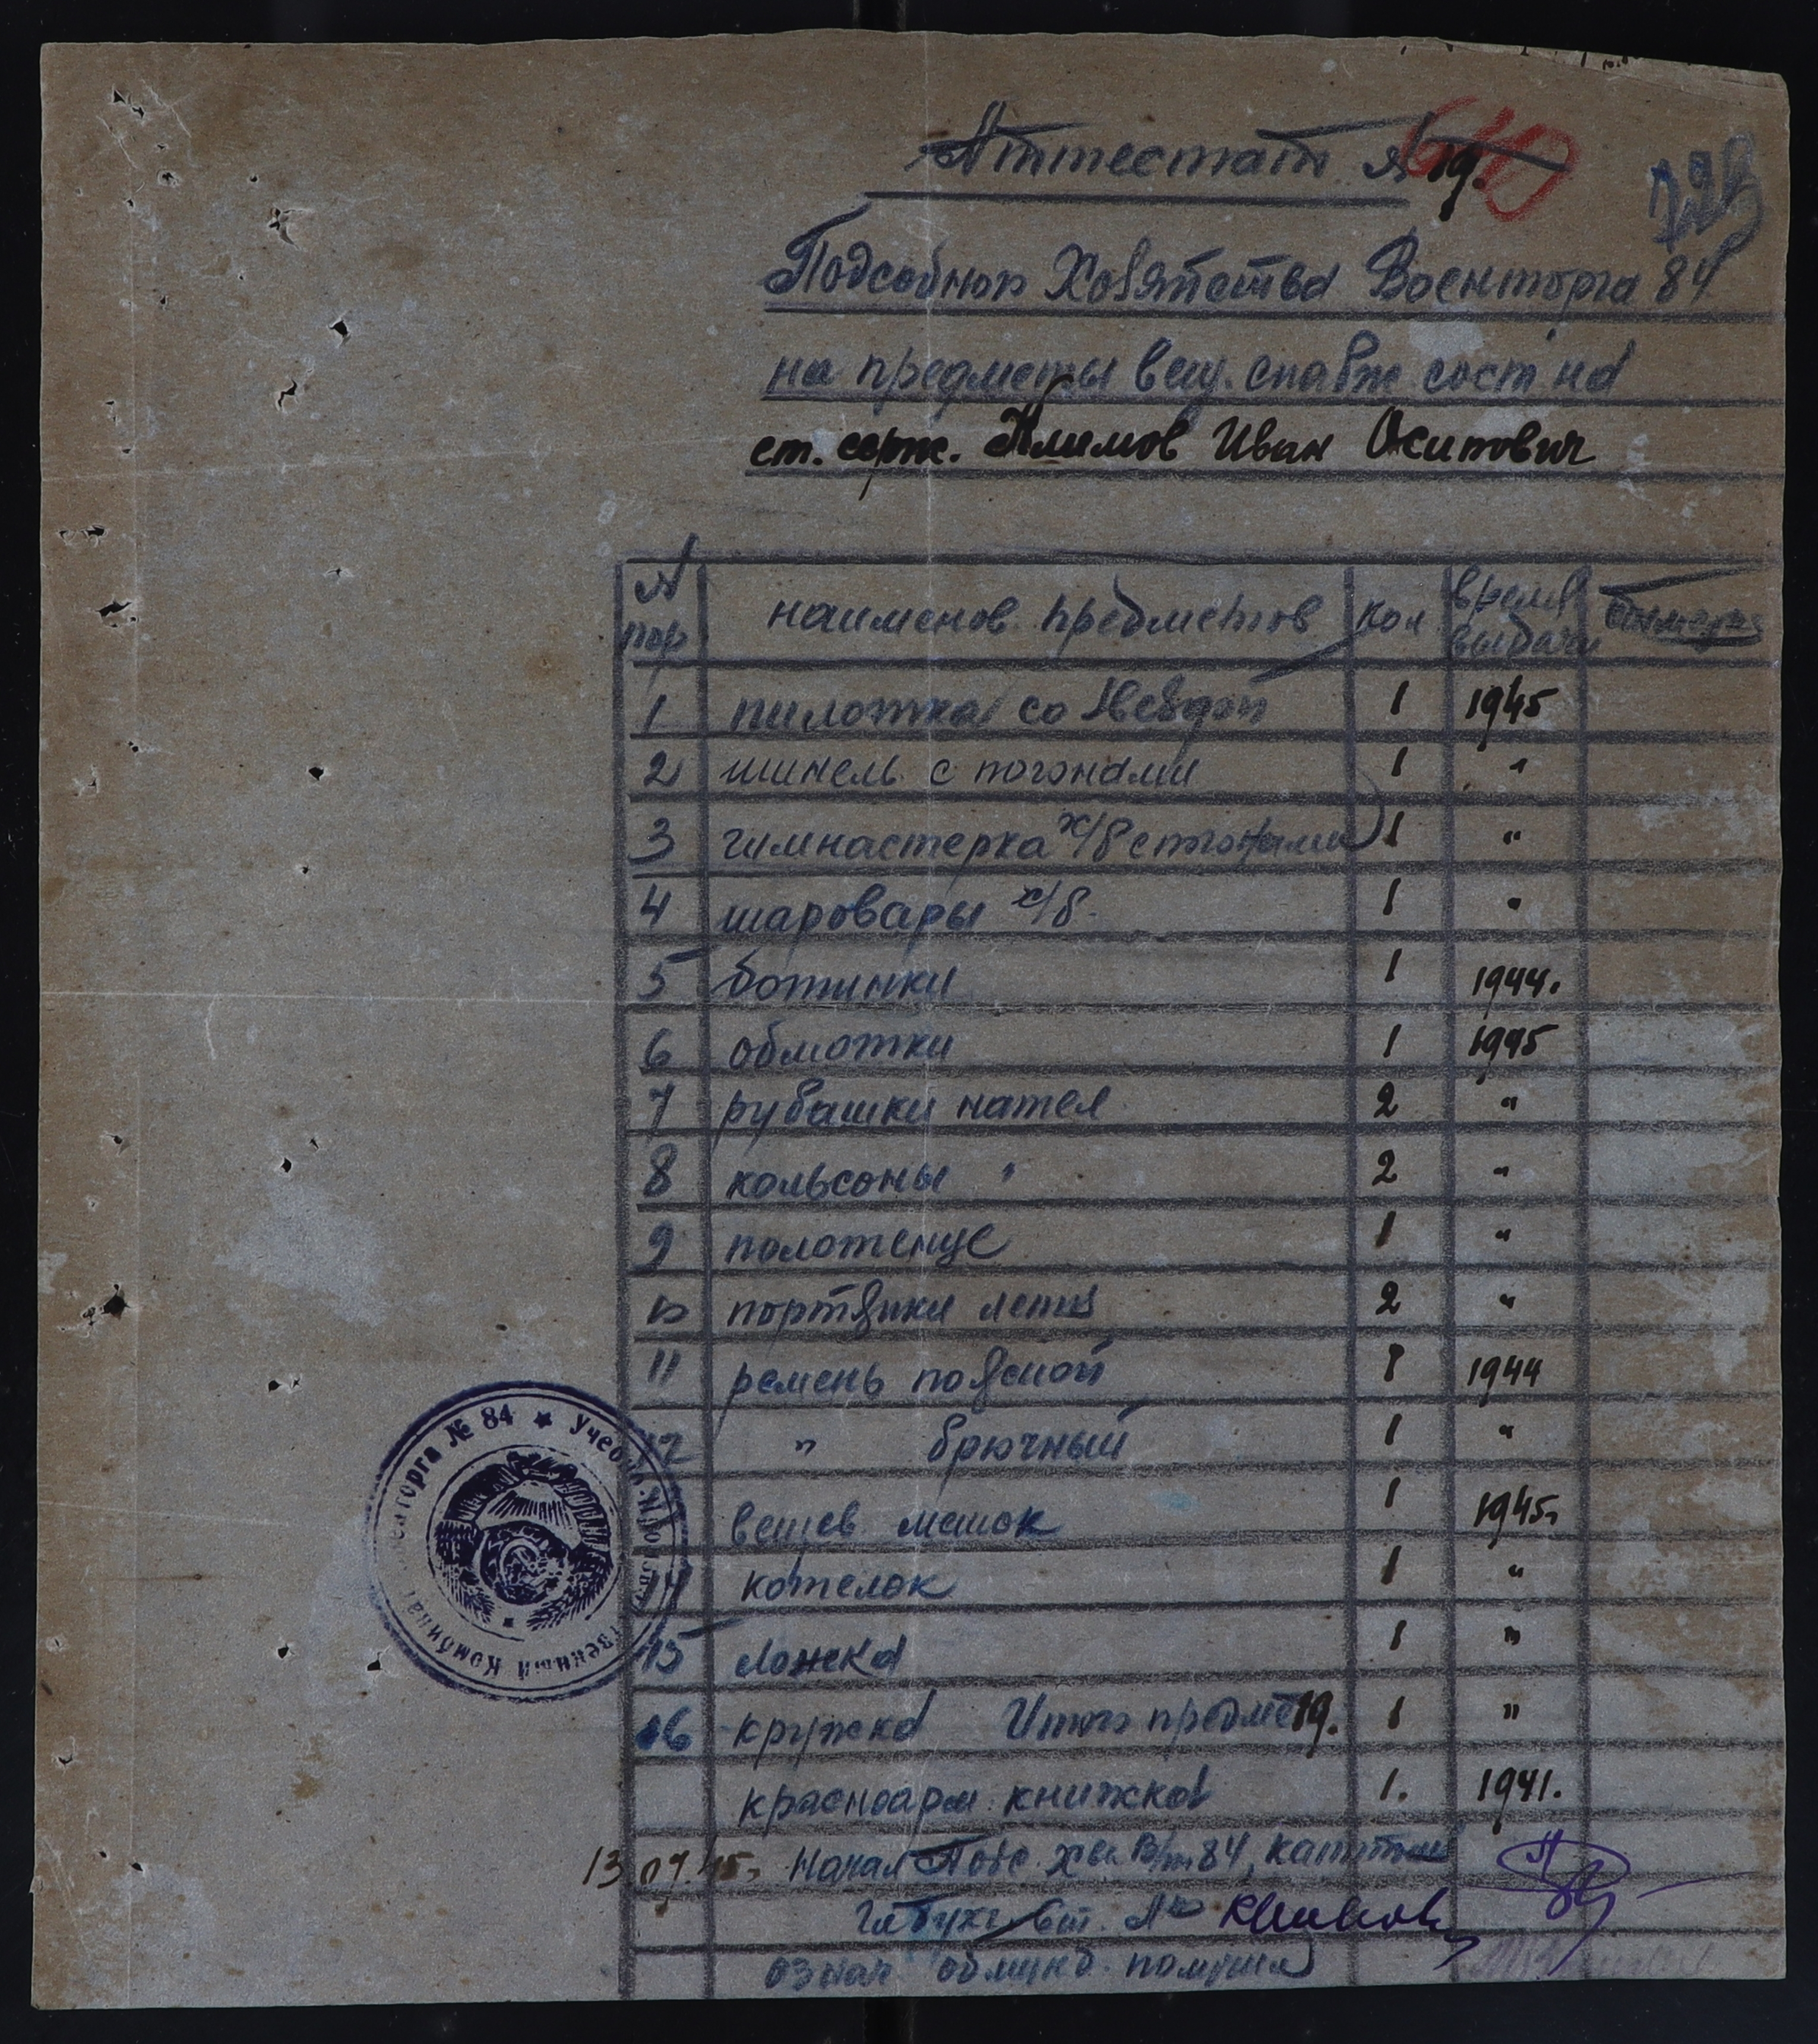 640
Аттестат № 19.
Подсобног Хозяйства Военторга 84
на предметы вещ. снабж. сост. на
ст. серж. Климов Иван Осипович
№ пор наименов предметов кол время выдачи
1 пилотка со звездой 1 1945
2 шинель с погонами 1 "
3 гимнастерка х/б с погонами 1 "
4 шаровары х/б. 1 "
5 ботинки 1 1944.
6 обмотки 1 1945
7 рубашки нател 2 "
8 кальсоны " 2 "
9 полотенце 1 "
10 портянки летн 2 "
11 ремень поясной 1 1944
12 " брючный 1 "
вещев мешок 1 1945.
14 котелок 1 "
15 ложка 1 "
16 кружка Итого предме 19. 1 "
красноарм. книжка 1. 1941.
13 07.45. Начал Подс. Х-ва В/т 84, капитан
Гл бухг
обмунд. получил
Учебно-Производственный Комбинат Военторга № 84